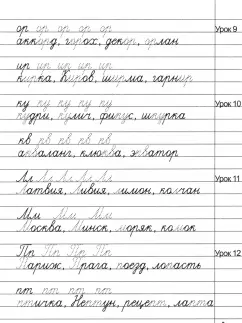 ор ор ор ор ор ор Урок 9
аккорд, горох, декор, орлан
ир ир ир ир ир
кирка, Киров, ширма, гарнир
ку ку ку ку ку Урок 10
кудри, кулич, фикус, шкурка
кв кв кв кв кв
акваланг, клюква, экватор
Лл Лл Лл Лл Лл Урок 11
Латвия, Ливия, лимон, колчан
Мм Мм Мм Мм
Москва, Минск, моряк, комок
Пп Пп Пп Пп Урок 12
Париж, Прага, поезд, лопасть
пт пт пт пт пт
птичка, Нептун, рецепт, лапта